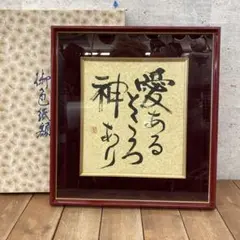 愛ある
ところ
神あり
色紙額